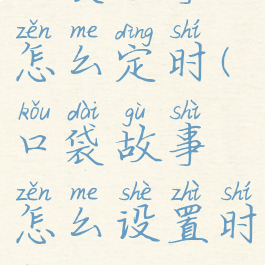 zěn me dìng shí
怎么定时(
kǒu dài gù shì
口袋故事
zěn me shè zhì shí
怎么设置时